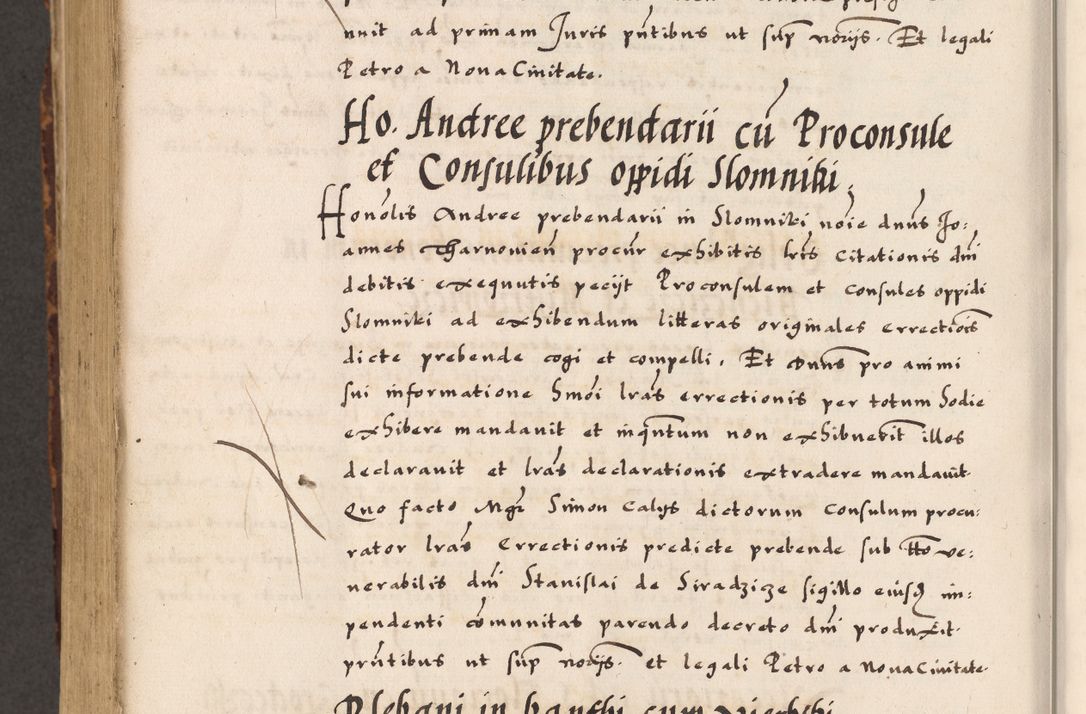 nuit ad primam Juris pñtibus ut sup notrijs. Et legali
Petro a Nova Civitate.
Ho. Andree prebendarii cu Proconsule
et Consulibus oppidi Slomniki
Honolis Andree prebendarii in Slomniki noie dnus Jo:
annes Tharnovień procur exhibitis lris Citationis dni
debitis exequutis pecijt Proconsulem et Consules oppidi
Slomniki ad exhibendum litteras originales errectiois
dicte prebende cogi et compelli. Et dnus pro animi
sui informatione hmoi lras errectionis per totum hodie
exhibere mandavit et inqntum non exhibuerit illos
declaravit et lras declarationis extradere mandavit.
Quo facto Mgr Simon Calys dictorum Consulum procu:
rator lras Errectionis predicte prebende sub tto ve:
nerabilis dni Stanislai de Siradzicze sigillo eiusq im:
pendenti comunitas parendo decreto dni produxit.
prntibus ut sup notrijs. et legali Petro a Nova Civitate.
Plebani in